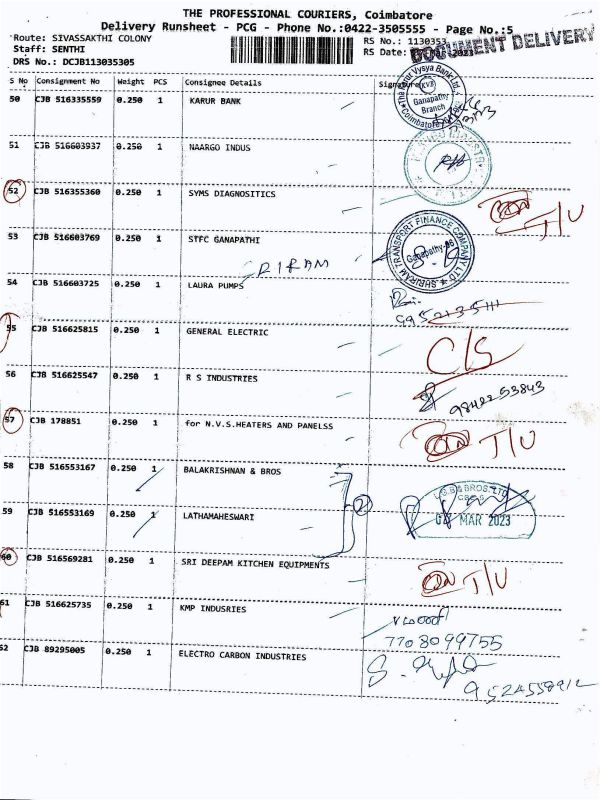 THE PROFESSIONAL COURIERS, Coimbatore
Delivery Runsheet - PCG - Phone No.:0422-3505555 - Page No.:5
Route: SIVASSAKTHI COLONY
RS No.: 1130353
DOCUMENT DELIVERY
Staff: SENTHI
RS Date:
DRS No.: DCJB113035305
S No Consignment No Weight PCS Consignee Details Signature
50 CJB 516335559 0.250 1 KARUR BANK
Ganapathy
Branch
51 CJB 516603937 0.250 1 NAARGO INDUS
52 CJB 516355360 0.250 1 SYMS DIAGNOSITICS
T/U
53 CJB 516603769 0.250 1 STFC GANAPATHI
SHRIRAM TRANSPORT FINANCE COMPANY LTD
Ganapathy-06
54 CJB 516603725 0.250 1 LAURA PUMPS
55 CJB 516625815 0.250 1 GENERAL ELECTRIC
C/S
56 CJB 516625547 0.250 1 R S INDUSTRIES
98422 53843
57 CJB 178851 0.250 1 for N.V.S.HEATERS AND PANELSS
T/U
58 CJB 516553167 0.250 1 BALAKRISHNAN & BROS
2
59 CJB 516553169 0.250 1 LATHAMAHESWARI
MAR 2023
60 CJB 516569281 0.250 1 SRI DEEPAM KITCHEN EQUIPMENTS
T/U
61 CJB 516625735 0.250 1 KMP INDUSRIES
7708099755
62 CJB 89295005 0.250 1 ELECTRO CARBON INDUSTRIES